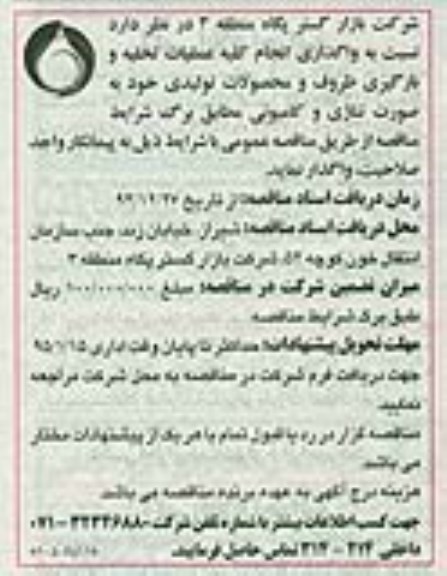 شرکت بازار گستر پگاه منطقه ۳ در نظر دارد
نسبت به واگذاری انجام کلیه عملیات تخلیه و
بارگیری ظروف و محصولات تولیدی خود به
صورت تناژی و کامیونی مطابق برگ شرایط
مناقصه از طریق مناقصه عمومی با شرایط ذیل به پیمانکار واجد
صلاحیت واگذار نماید.
زمان دریافت اسناد مناقصه: از تاریخ
محل دریافت اسناد مناقصه: شیراز، خیابان زند، جنب سازمان
انتقال خون کوچه ۵۲، شرکت بازار گستر پگاه منطقه ۳
میزان تضمین شرکت در مناقصه: مبلغ ۱۰۰/۰۰۰/۰۰۰ ریال
طبق برگ شرایط مناقصه
مهلت تحویل پیشنهادات: حداکثر تا پایان وقت اداری ۹۵/۱/۱۵
جهت دریافت فرم شرکت در مناقصه به محل شرکت مراجعه
نمایید.
مناقصه گزار در رد یا قبول تمام یا هر یک از پیشنهادات مختار
می باشد.
هزینه درج آگهی به عهده برنده مناقصه می باشد.
جهت کسب اطلاعات بیشتر با شماره تلفن شرکت ۳۲۳۳۶۸۸۰-۰۷۱
داخلی ۲۱۴ - ۳۱۴ تماس حاصل فرمایید.